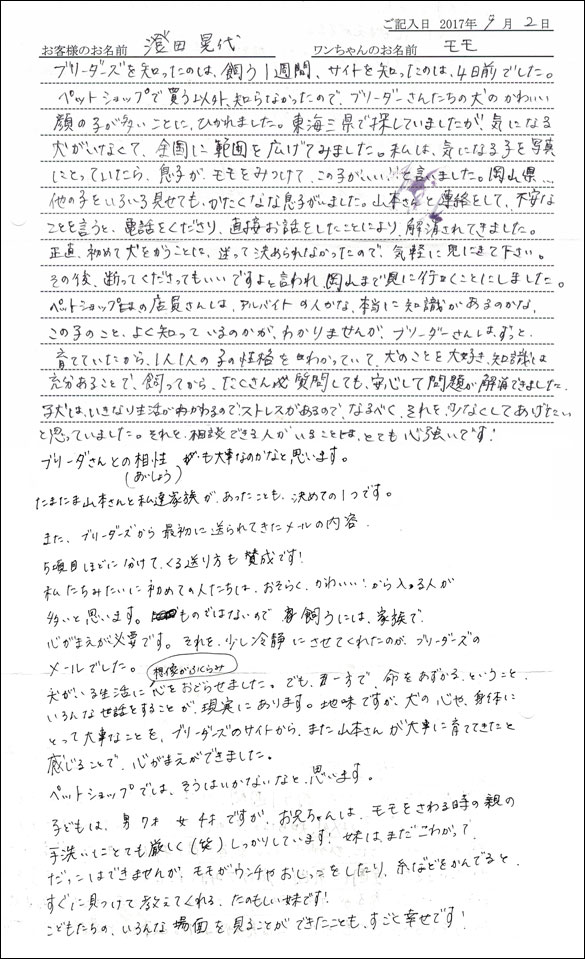 ご記入日 2017年 9月 2日
お客様のお名前 澄田 晃代 ワンちゃんのお名前 モモ
ブリーダーズを知ったのは、飼う1週間、サイトを知ったのは、4日前でした。
ペットショップで買う以外、知らなかったので、ブリーダーさんたちの犬のかわいい
顔の子が多いことに、ひかれました。東海三県で探していましたが、気になる
犬がいなくて、全国に範囲を広げてみました。私は、気になる子を写真
にとっていたら、息子が、モモをみつけて、この子がいい!!と言いました。岡山県…
他の子をいろいろ見せても、かたくなな息子がいました。山本さんと連絡をして、不安な
ことを言うと、電話をくださり、直接お話をしたことにより、解消されてきました。
正直、初めて犬をかうことに、迷って決められなかったので、気軽に見にきて下さい。
その後、断ってくださってもいいですよと言われ、岡山まで見に行くことにしました。
ペットショップの店員さんは、アルバイトの人かな、本当に知識があるのかな、
この子のこと、よく知っているのかが、わかりませんが、ブリーダーさんは、ずっと、
育てていたから、1人1人の子の性格をわかっていて、犬のことを大好き、知識は
充分あることで、飼ってから、たくさん質問しても、安心して問題が解消できました。
子犬は、いきなり生活がかわるのでストレスがあるので、なるべく、それを少なくしてあげたい
と思っていました。それを、相談できる人がいることは、とても心強いです!
ブリーダさんとの相性も大事なのかなと思います。
(あいしょう)
たまたま山本さんと私達家族が、あったことも、決めての1つです。
また、ブリーダーズから最初に送られてきたメールの内容、
5項目ほどに分けて、くる送り方も賛成です!
私たちみたいに初めての人たちは、おそらく、かわいい!から入る人が
多いと思います。ものではないので飼うには、家族で、
心がまえが必要です。それを、少し冷静にさせてくれたのが、ブリーダーズの
メールでした。想像がふくらみ
犬がいる生活に心をおどらせました。でも、一方で、命をあずかる、ということ、
いろんな世話をすることが、現実にあります。地味ですが、犬の心や、身体に
とって大事なことを、ブリーダーズのサイトから、また山本さんが大事に育ててきたと
感じることで、心がまえができました。
ペットショップでは、そうはいかないなと、思います。
子どもは、男7才 女4才ですが、お兄ちゃんは、モモをさわる時の親の
手洗いにとても厳しく(笑)しっかりしています!妹はまだこわがって
だっこはできませんが、モモがウンチやおしっこをしたり、糸などをかんでると、
すぐに見つけて教えてくれる、たのもしい妹です!
こどもたちの、いろんな場面を見ることができたことも、すごく幸せです!